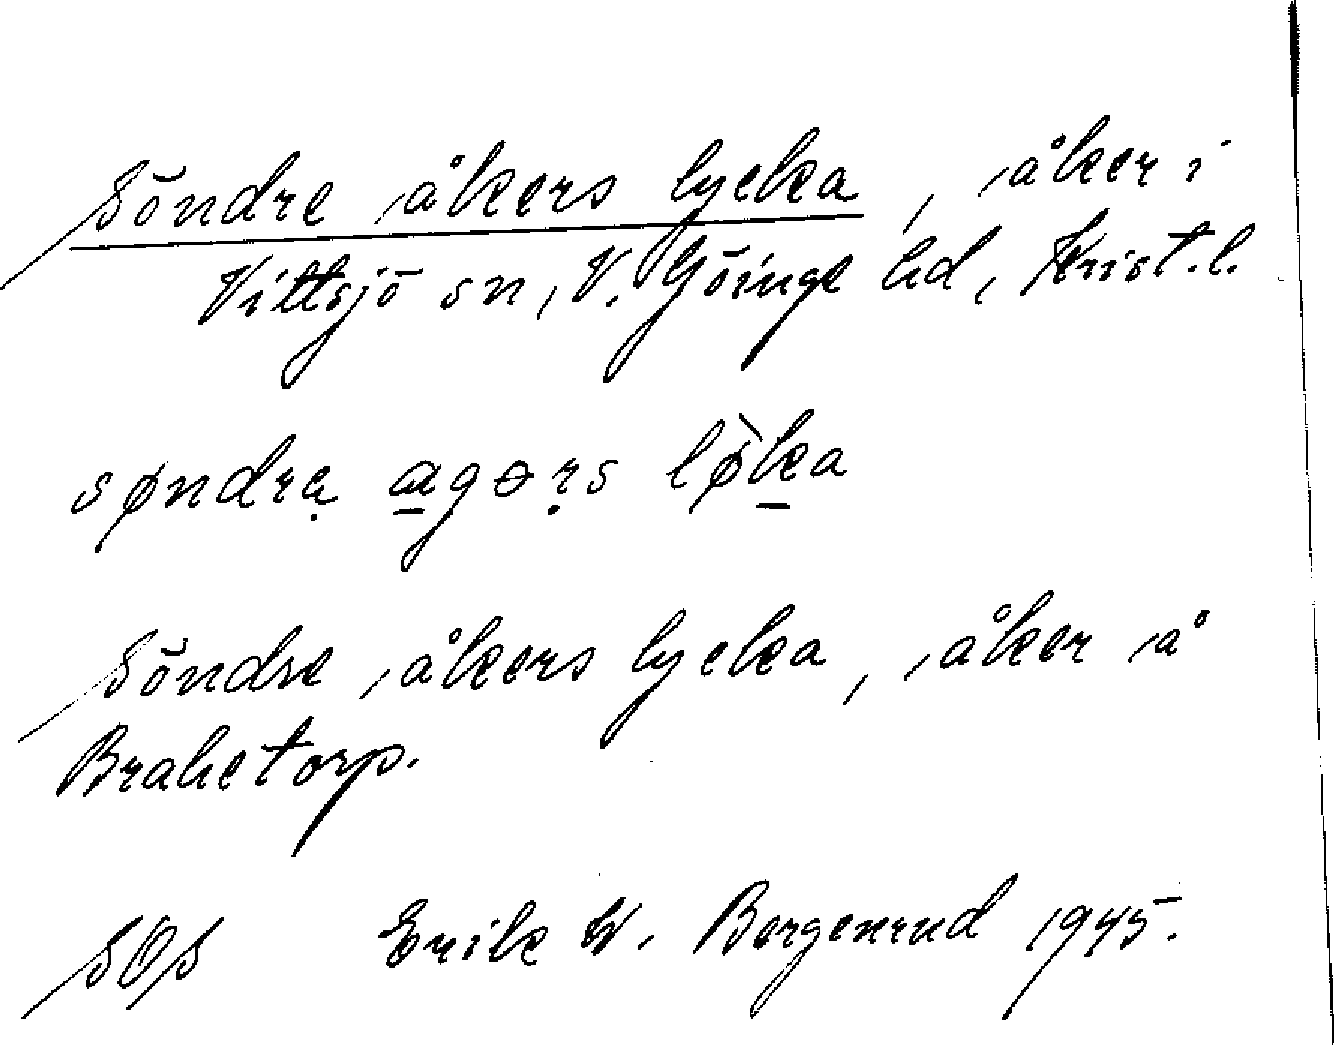 Söndre åkers lycka, åker i
Vittsjö sn, V. Göinge hd, Krist. l.
søndrą a̲gɵṛs lø̀k̲a
Söndre åkers lycka, åker å
Brahetorp.
SOS Erik W. Bergenrud 1945.